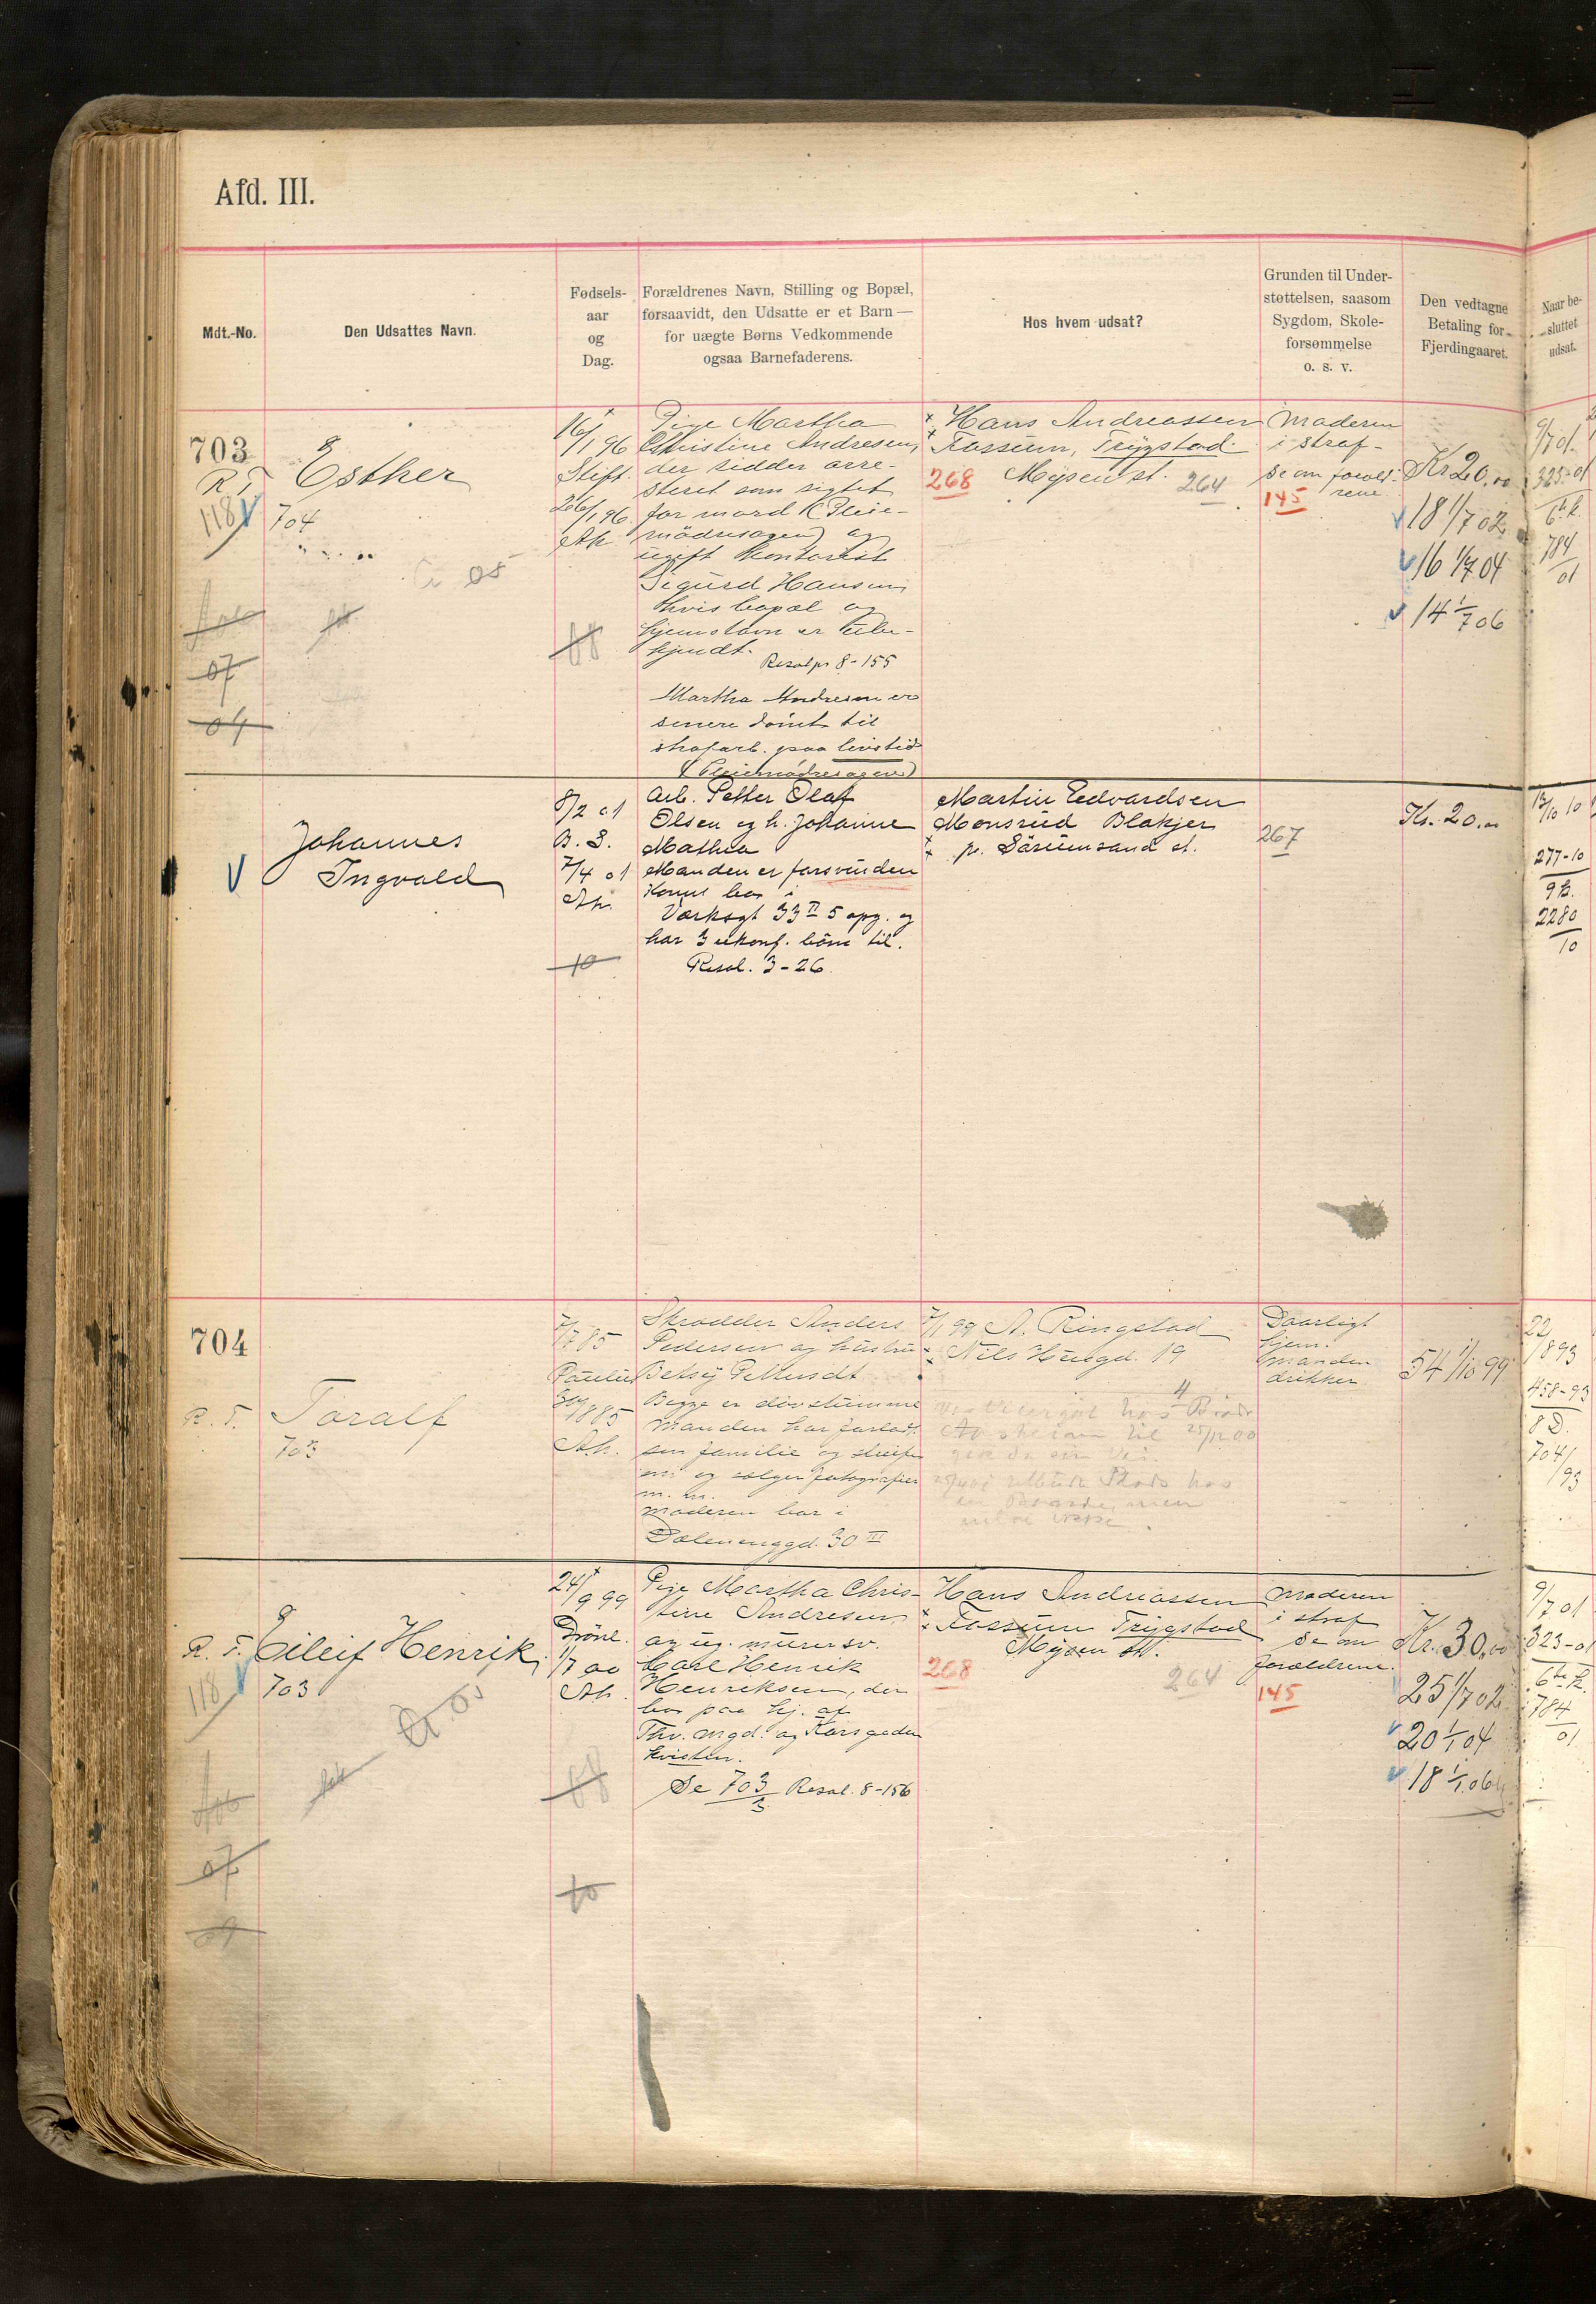 Afd. III.
Mdt.-No.
Den Udsattes Navn.
Fødsels-
aar
og
Dag.
Forældrenes Navn, Stilling og Bopæl,
forsaavidt, den Udsatte er et Barn —
for uægte Børns Vedkommende
ogsaa Barnefaderens.
Hos hvem udsat?
Grunden til Under-
støttelsen, saasom
Sygdom, Skole-
forsømmelse
o. s. v.
Den vedtagne
Betaling for
Fjerdingaaret.
Naar be-
sluttet
udsat.
703
R. T.
118
Esther
704
05
07
04
16/1 96
Stift.
26/1 96
Ak.
Pige Martha
Christine Andresen,
der sidder arre-
steret som sigtet
for mord (Pleie-
mödresagen) og
ugift kontorist
Sigurd Hansen,
hvis bopæl og
hjemstavn er ube-
kjendt.
Resolpr 8-155
Martha Andresen er
senere dömt til
strafarb. paa livstid
(Pleiemödresagen)
Hans Andreassen
Fossum, Trygstad
268 Mysen st. 264
Moderen
i straf-
se om foræld-
rene
145
Kr 20.00
18 1/7 02
16 1/7 04
14 1/7 06
9/7 01
325-01
6te k.
784
01
Johannes
Ingvald
8/2 01
B. S.
7/4 01
Ak.
10
Arb. Petter Olaf
Olsen og h. Johanne
Mathea
Manden er forsvunden
Konen bor i
Værksgt 33 II 5 opg. og
har 3 ukonf. börn til.
Resol. 3-26.
Martin Edvardsen
Monsrud Blakjer
pr. Sörumsand st.
267
Kr. 20.00
277-10
2280
10
704
R. T.
Toralf
703
7/7 85
Paulus
30/8 1885
Ak.
Skrædder Anders
Pedersen og hustru
Betsy
Begge er dövstumme
Manden har forladt
sin familie og streifer
om og sælger fotografier
m. m.
Moderen bor i
Dælenenggd. 30 III
7/1 99 A. Ringstad
Nils Huusgd. 19
Daarligt
hjem.
Manden
drikker
54 1/10 99
22
1893
458-93
704
93
R. T.
118
Eileif Henrik
703
07
24/9 99
Grönl.
1/7 00
Ak.
10
Pige Martha Chris-
tine Andresen
og ug. murersv.
Carl Henrik
Henriksen, der
bor paa hj. af
Thv. Mgd. og Korsgaden
kvisten.
Se 703/3 Resol. 8-156
Hans Andreassen
Fossum Trygstad
Mysen st.
268
264
Moderen
i straf
Se om
forældrene.
145
Kr. 30.00
25 1/7 02
20 1/1 04
18 1/1 06
9/7 01
323-01
6te k.
784
01